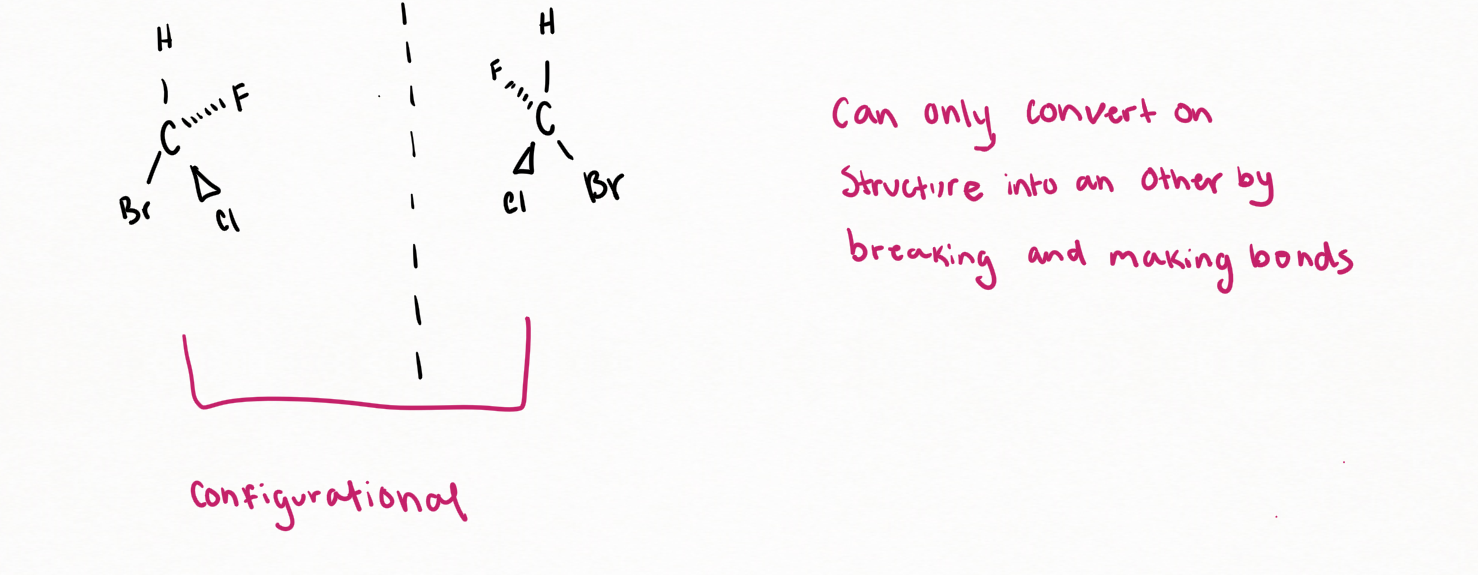 H
H
F
F
C
C
Br
Cl
Cl
Br
Can only convert on
Structure into an Other by
breaking and making bonds
Configurational